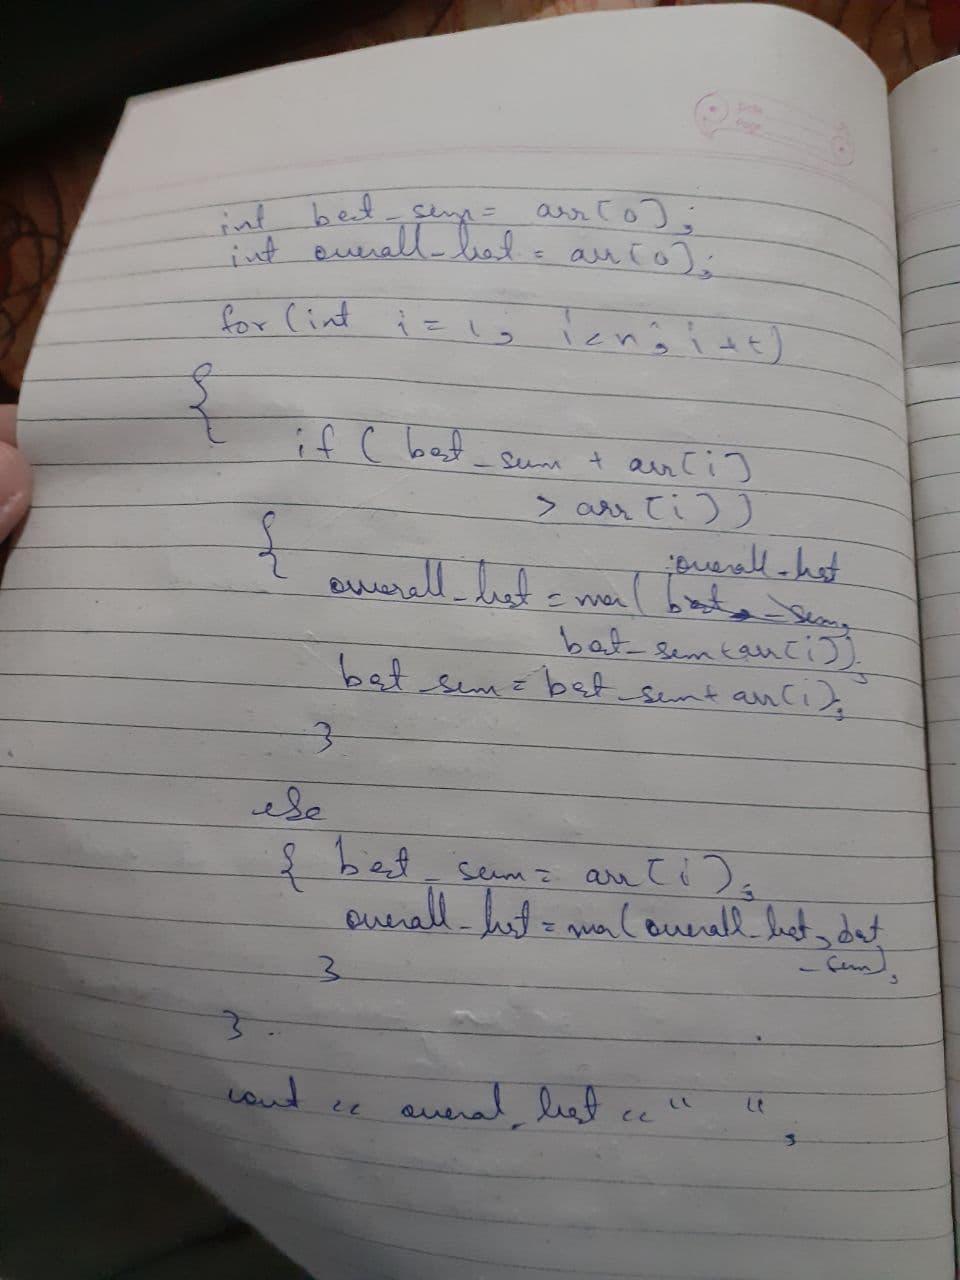 Date
Page
int best_sum = arr[0];
int overall_best = arr[0];
for (int i = 1; i<n; i++)
{
if ( best_sum + arr[i]
> arr[i])
{
overall_best
overall_best = max( best_sum,
best_sum+arr[i]);
best_sum = best_sum+ arr[i];
}
else
{ best_sum = arr[i];
overall_best = max(overall_best, best
_sum);
}
}.
cout << overal_best << " ";